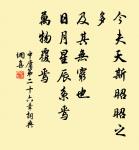 今夫天斯昭昭之
多
及其無窮也
日月星辰系焉
萬物覆焉
中庸第二十六章詞典
網